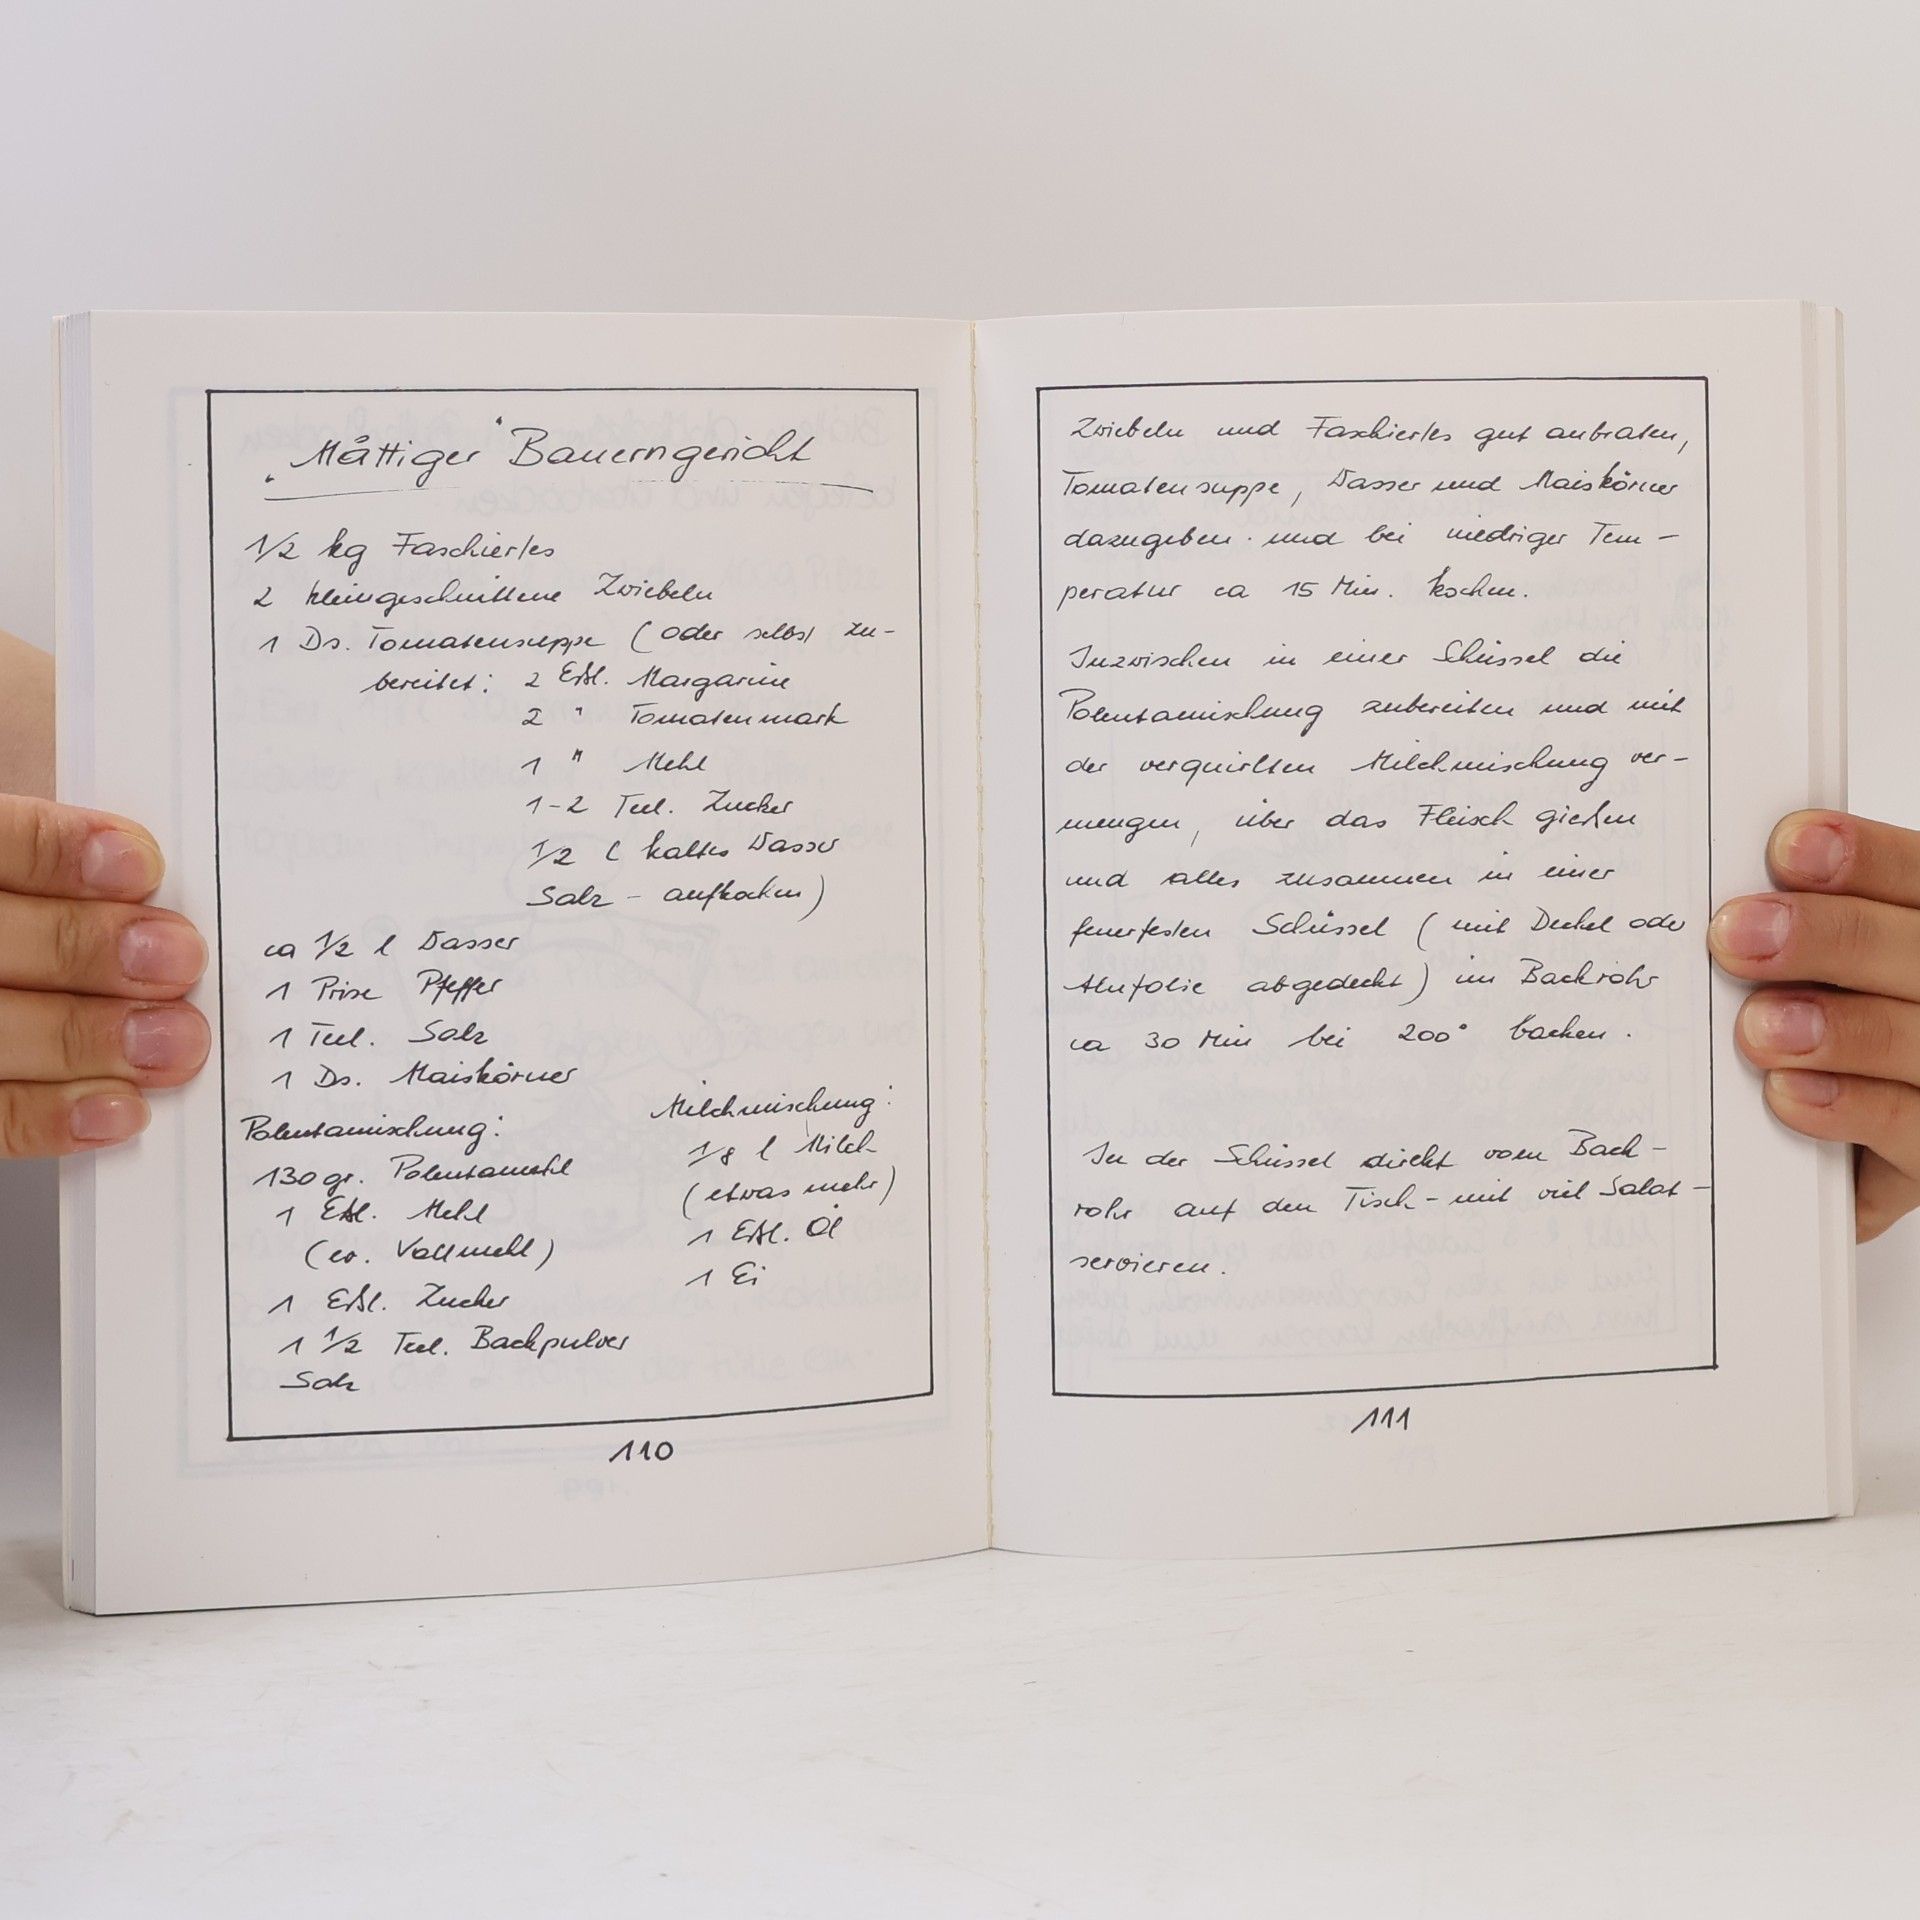 „Måttiger" Bauerngericht
1/2 kg Faschiertes
2 kleingeschnittene Zwiebeln
1 Ds. Tomatensuppe (oder selbst zu-
bereitet: 2 Eßl. Margarine
2 " Tomatenmark
1 " Mehl
1-2 Teel. Zucker
1/2 l kaltes Wasser
Salz - aufkochen)
ca 1/2 l Wasser
1 Prise Pfeffer
1 Teel. Salz
1 Ds. Maiskörner
Polentamischung:
130 gr. Polentamehl
1 Eßl. Mehl
(ev. Vollmehl)
1 Eßl. Zucker
1 1/2 Teel. Backpulver
Salz
Milchmischung:
1/8 l Milch
(etwas mehr)
1 Eßl. Öl
1 Ei
110
Zwiebeln und Faschiertes gut anbraten,
Tomatensuppe, Wasser und Maiskörner
dazugeben und bei niedriger Tem-
peratur ca 15 Min. kochen.
Inzwischen in einer Schüssel die
Polentamischung zubereiten und mit
der verquirlten Milchmischung ver-
mengen, über das Fleisch gießen
und alles zusammen in einer
feuerfesten Schüssel (mit Deckel oder
Alufolie abgedeckt) im Backrohr
ca 30 Min bei 200° backen.
In der Schüssel direkt vom Back-
rohr auf den Tisch - mit viel Salat -
servieren.
111